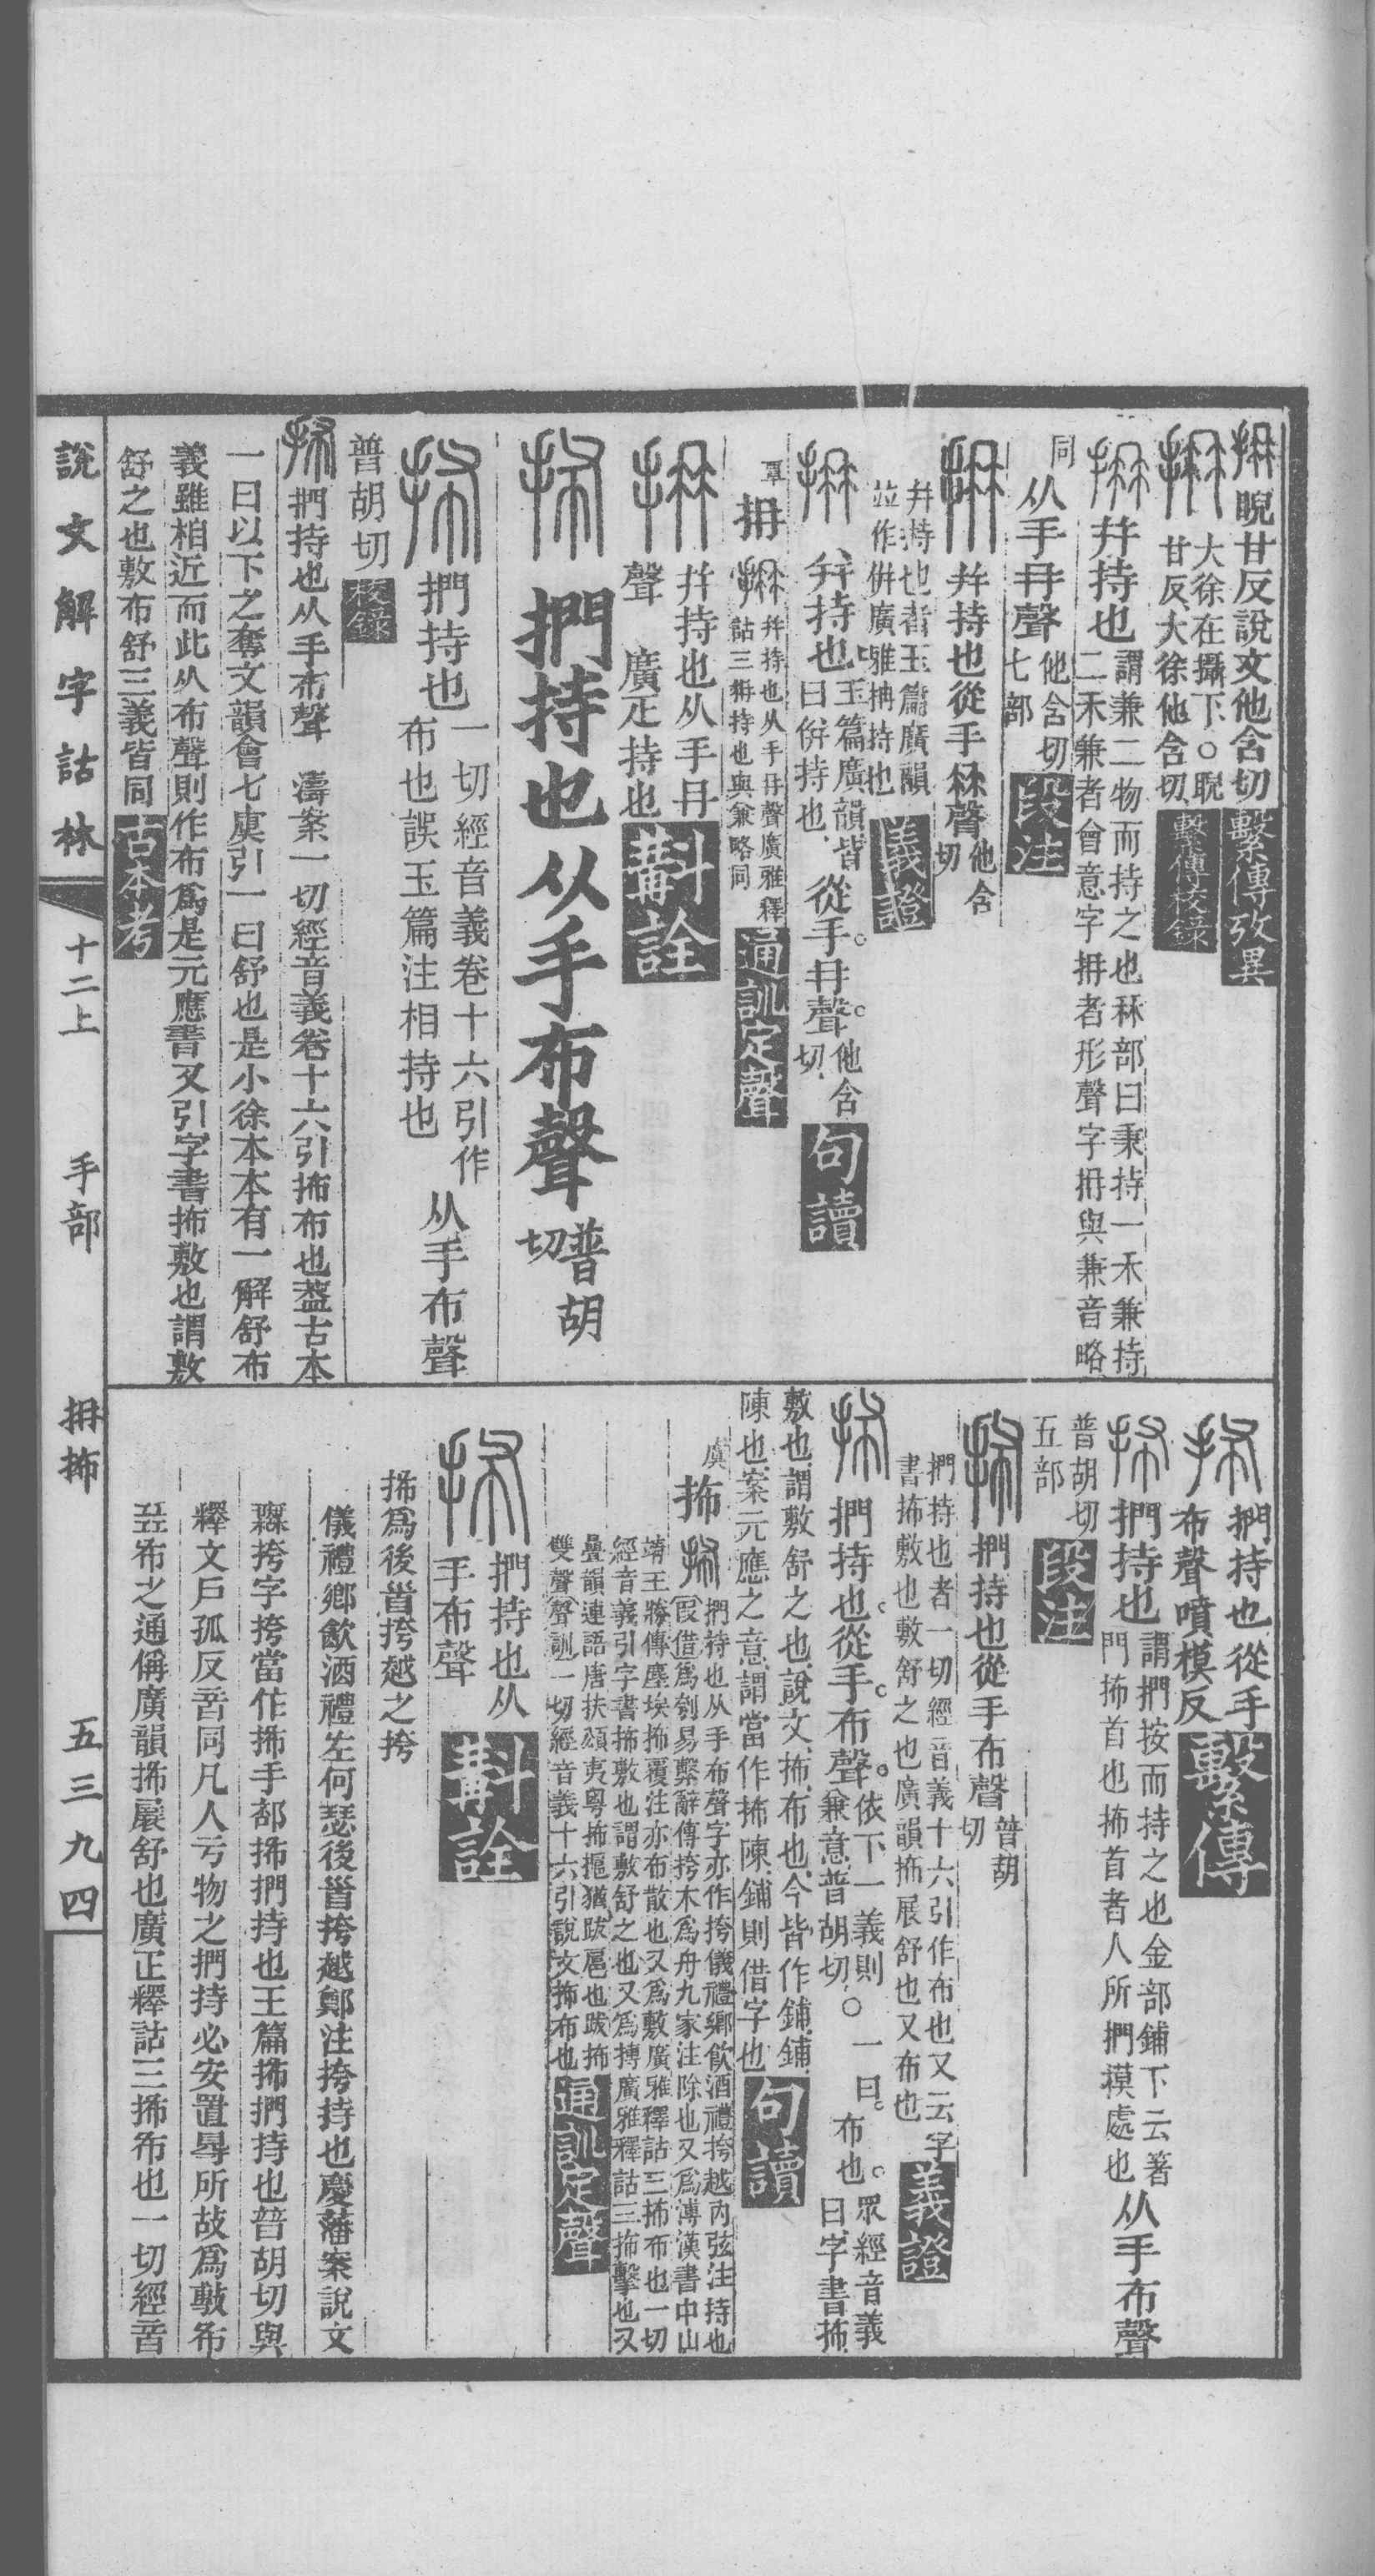 抩睨甘反說文他含切繫傳攷異
大徐在攝下○睨
甘反大徐他含切繫傳校錄
幷持也謂兼二物而持之也秝部曰秉持一禾兼持
二禾兼者會意字抩者形聲字抩與兼音略
同从手冄聲他含切
七部段注
幷持也從手冄聲他含
切
幷持也者玉篇廣韻
竝作倂廣雅抩持也義證
幷持也玉篇廣韻皆
曰倂持也從手冄聲他含
切句讀
抩幷持也从手冄聲廣雅釋
詁三抩持也與兼略同通訓定聲
幷持也从手冄
聲 廣疋持也斠詮
捫持也从手布聲普胡
切
捫持也一切經音義卷十六引作
布也誤玉篇注相持也从手布聲
普胡切校錄
捫持也从手布聲 濤案一切經音義卷十六引抪布也蓋古本
一曰以下之奪文韻會七虞引一曰舒也是小徐本本有一解舒布
義雖相近而此从布聲則作布爲是元應書又引字書抪敷也謂敷
舒之也敷布舒三義皆同古本考
捫持也從手
布聲噴模反繫傳
捫持也謂捫按而持之也金部鋪下云箸
門抪首也抪首者人所捫摸處也从手布聲
普胡切
五部段注
捫持也從手布聲普胡
切
捫持也者一切經音義十六引作布也又云字
書抪敷也敷舒之也廣韻抪展舒也又布也義證
捫持也從手布聲依下一義則
兼意普胡切○一曰布也眾經音義
曰字書抪
敷也謂敷舒之也說文抪布也今皆作鋪鋪
陳也案元應之意謂當作抪陳鋪則借字也句讀
抪捫持也从手布聲字亦作挎儀禮鄉飲酒禮挎越內弦注持也
叚借爲刳易繫辭傳挎木爲舟九家注除也又爲溥漢書中山
靖王勝傳塵埃抪覆注亦布散也又爲敷廣雅釋詁三抪布也一切
經音義引字書抪敷也謂敷舒之也又爲搏廣雅釋詁三抪擊也又
疊韻連語唐扶頌夷粤抪摳猶跋扈也跋抪
雙聲聲訓一切經音義十六引說文抪布也通訓定聲
捫持也从
手布聲斠詮
抪爲後首挎越之挎
儀禮鄉飲酒禮左何瑟後首挎越鄭注挎持也慶藩案說文
無挎字挎當作抪手部抪捫持也玉篇抪捫持也普胡切與
釋文戶孤反音同凡人亏物之捫持必安置得所故爲敷布
㠭布之通偁廣韻抪展舒也廣疋釋詁三抪布也一切經音
說文解字詁林
十二上 手部 抩抪 五三九四